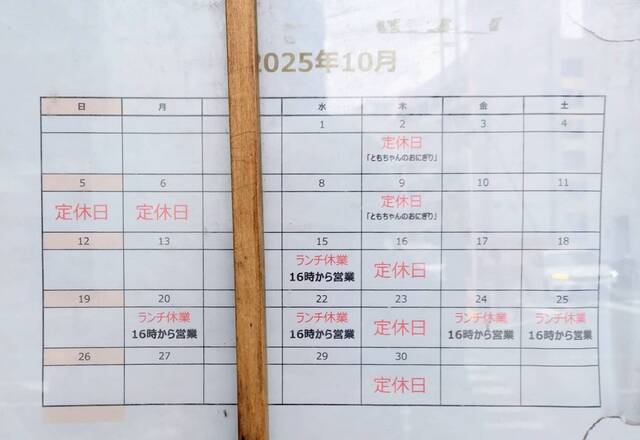 2025年10月
日 月 水 木 金 土
1 2 3 4
定休日
「ともちゃんのおにぎり」
5 6 8 9 10 11
定休日 定休日 定休日
「ともちゃんのおにぎり」
12 13 15 16 17 18
ランチ休業 定休日
16時から営業
19 20 22 23 24 25
ランチ休業 ランチ休業 定休日 ランチ休業 ランチ休業
16時から営業 16時から営業 16時から営業 16時から営業
26 27 29 30
定休日